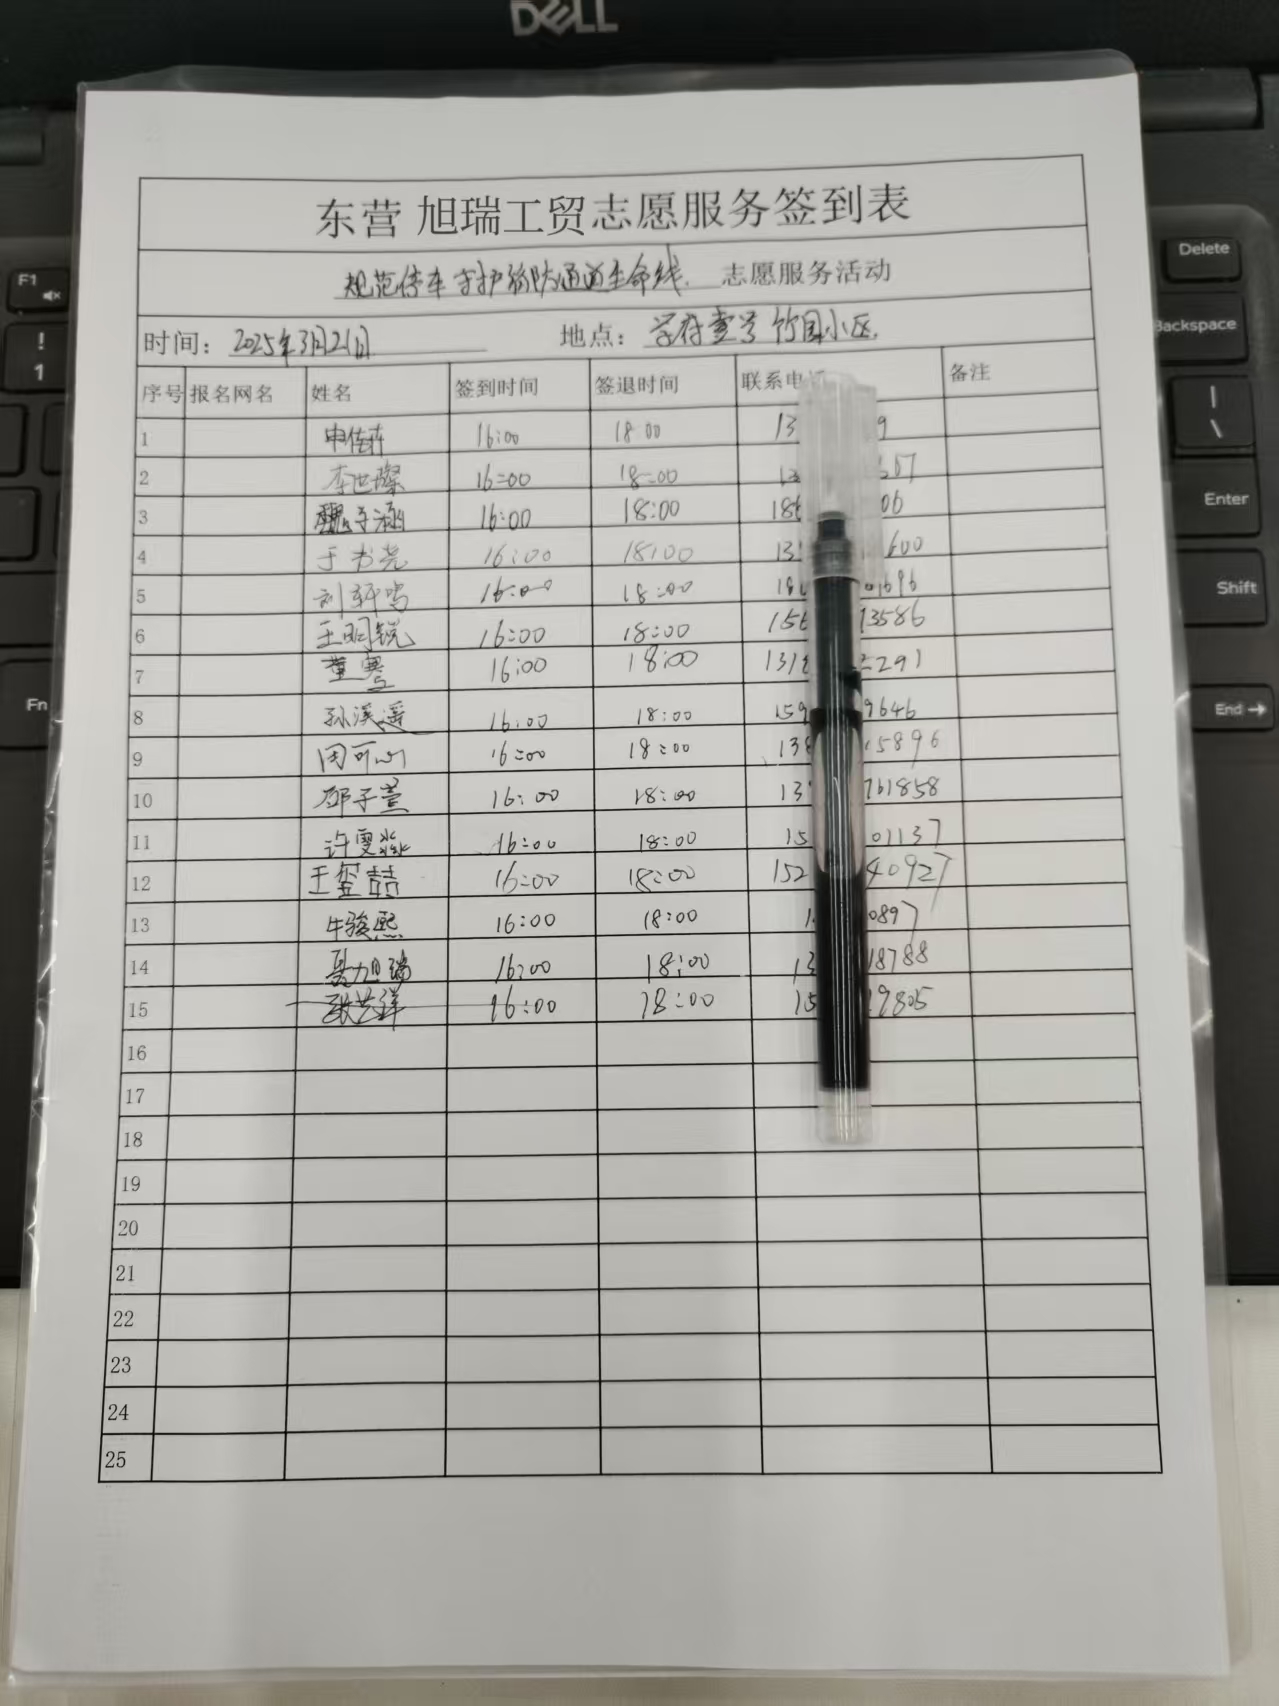 DELL
东营 旭瑞工贸志愿服务签到表
规范停车 守护消防通道生命线. 志愿服务活动
时间: 2025年3月21日 地点: 学府壹号 竹园小区.
序号 报名网名 姓名 签到时间 签退时间 联系电 备注
1 申佳卉 16:00 18:00 13 9
2 李世璨 16:00 18:00 13
3 魏子涵 16:00 18:00 186 06
4 于书尧 16:00 18:00 13 600
5 刘轩鸣 16:00 18:00 696
6 王明锐 16:00 18:00 156 3586
7 董骞 16:00 18:00 1318 2291
8 孙溪遥 16:00 18:00 159 9646
9 周可心 16:00 18:00 138 15896
10 邵子萱 16:00 18:00 13 761858
11 许雯淼 16:00 18:00 15 01137
12 王玺喆 16:00 18:00 152 40927
13 牛骏熙 16:00 18:00 1 0897
14 聂旭瑞 16:00 18:00 13 18788
15 张艺洋 16:00 18:00 15 9805
16
17
18
19
20
21
22
23
24
25
F1
!
1
Fn
Delete
Backspace
|
\
Enter
Shift
End →